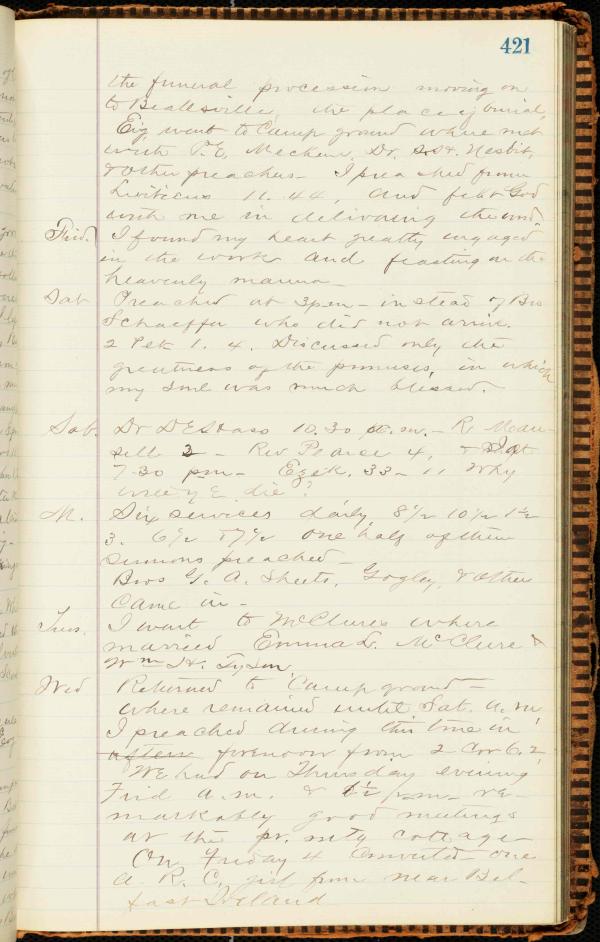 421
the funeral procession moving on
to Beallsville, the place of burial,
Eig, went to Camp ground where met
with Dr. Nesbit,
& other preachers - I preached from
Leviticus 11.44, and felt God
with me in delivering the word.
Frid. I found my heart greatly engaged
in the work and feasting on the
heavenly manna -
Sat Preached at 3 p.m - instead of Bro
Schaeffer who did not arrive.
2 Pet 1. 4. Discussed only the
greatness of the promises, in which
my soul was much blessed.
Sab. Dr 10.30 a.m. - R.
2 - Rev Pearce 4, & I at
7-30 pm - Ezek. 33 - 11 Why
will ye die?
M. Six services daily, 8 1/2 10 1/2 1 1/2
3. 6 1/2 & 7 1/2 one half of them
sermons preached -
Bros G. A. Sheets, Gogley, & other
came in -
Tues. I went to McClures where
married Emma L. McClure &
Wm H. Tyson
Wed Returned to Camp ground -
where remained until Sat. a.m,
I preached during this time in
aftern forenoon from 2 Cor 6. 2,
We had on Thursday evening
Frid a.m. & 1 1/2 p.m - re-
markably good meetings
at the cottage -
On Friday 4 converted - one
a R. C. girl from near Bel-
fast Ireland